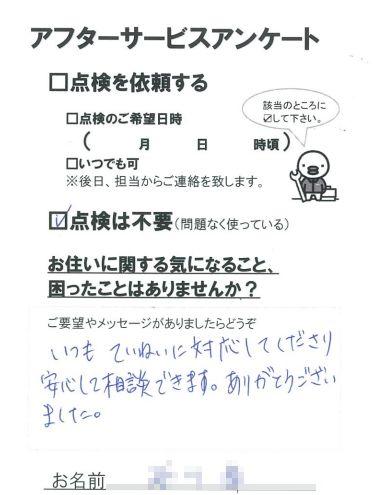 アフターサービスアンケート
□点検を依頼する
□点検のご希望日時
( 月 日 時頃)
□いつでも可
※後日、担当からご連絡を致します。
該当のところに
☑して下さい。
☑点検は不要(問題なく使っている)
お住いに関する気になること、
困ったことはありませんか?
ご要望やメッセージがありましたらどうぞ
いつも ていねいに対応してくださり
安心して相談できます。ありがとうござい
ました。
お名前